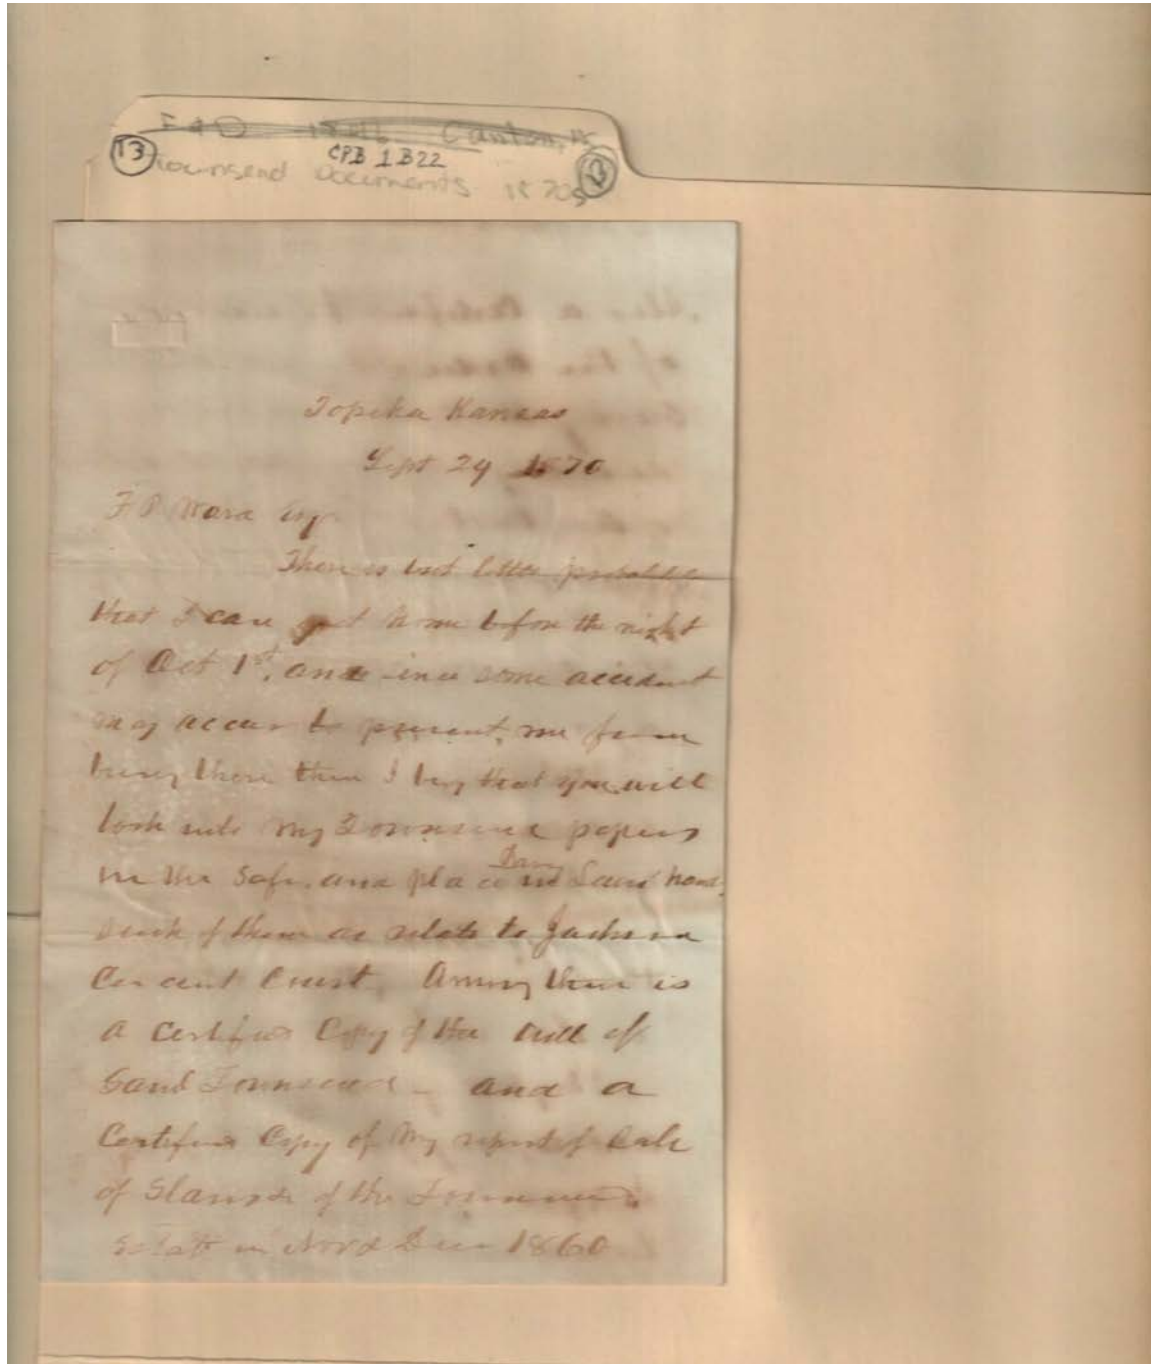 Canton, 
13 CPB 1 B22
Townsend Documents 1870s
Also a Certified
of the
Topeka Kansas
Sept 29 1870
Ward Esq
There is but little probability
that I can get home before the night
of Oct 1st, and since some accident
may occur to prevent me from
being there then I beg that you will
look into my Townsend papers
Dan
in the Safe, and place in hands
such of them as relate to Jackson
Circuit Court. Among them is
a certified Copy of the will of
Saml Townsend - and a
Certified Copy of my report of Sale
of Slaves of the Townsend
Estate in Nov & Dec 1860